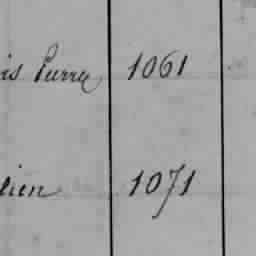 is Pierre 1061
lien 1071